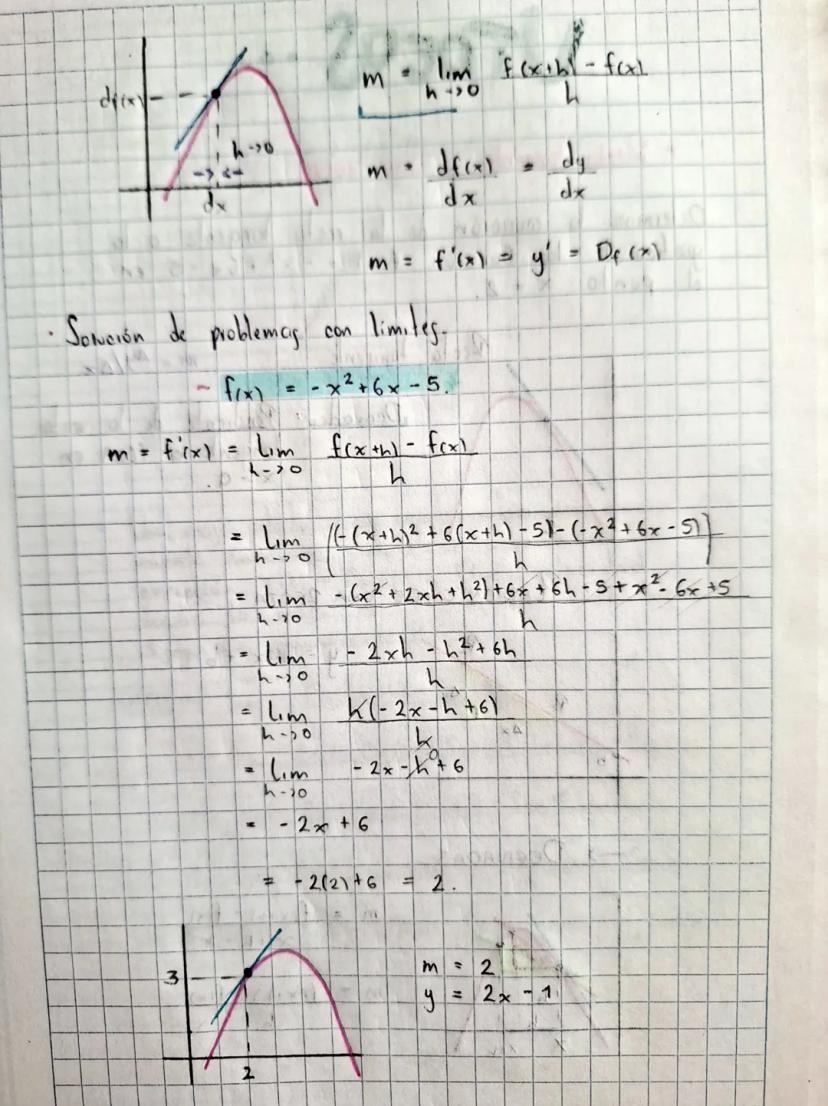 m = lim h→0 f(x+h) - f(x) / h
df(x)
h→0
dx
m = df(x)/dx = dy/dx
m = f'(x) = y' = Df(x)
· Solución de problemas con límites.
~ f(x) = -x² + 6x - 5.
m = f'(x) = Lim h→0 f(x+h) - f(x) / h
= Lim h→0 [(-(x+h)² + 6(x+h) - 5) - (-x² + 6x - 5)] / h
= Lim h→0 -(x² + 2xh + h²) + 6x + 6h - 5 + x² - 6x + 5 / h
= Lim h→0 - 2xh - h² + 6h / h
= Lim h→0 h(-2x - h + 6) / h
= Lim h→0 - 2x - h⁰ + 6
= - 2x + 6
= -2(2) + 6 = 2.
3
m = 2
y = 2x - 1
2